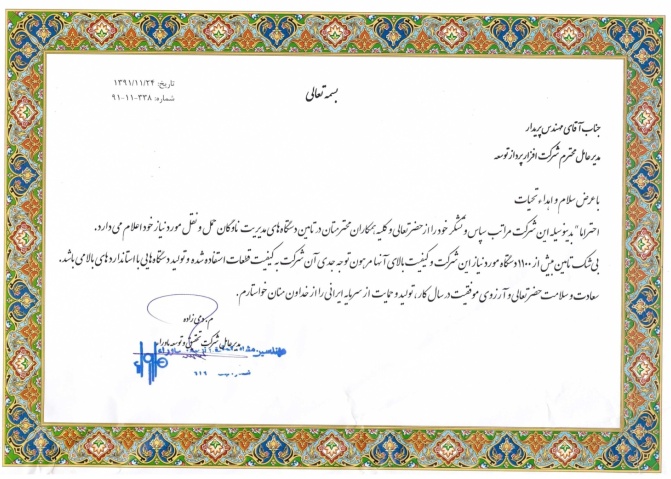 تاریخ: ۱۳۹۱/۱۱/۲۴
شماره: ۳۳۸-۱۱-۹۱
بسمه تعالی
جناب آقای مهندس پریدار
مدیر عامل محترم شرکت افزار پرداز توسعه
با عرض سلام و اهداء تحیات
احتراما" بدینوسیله این شرکت مراتب سپاس و تشکر خود را از حضرتعالی و کلیه همکاران محترمتان در تامین دستگاه های مدیریت ناوگان حمل و نقل مورد نیاز خود اعلام می دارد.
بی شک تامین بیش از ۱۱۰۰ دستگاه مورد نیاز این شرکت و کیفیت بالای آنها مرهون توجه جدی آن شرکت به کیفیت قطعات استفاده شده و تولید دستگاه هایی با استاندارد های بالا می باشد.
سعادت و سلامت حضرتعالی و آرزوی موفقیت در سال کار، تولید و حمایت از سرمایه ایرانی را از خداوند منان خواستارم.
مدیر عامل شرکت تحقیق و توسعه
۶۱۹